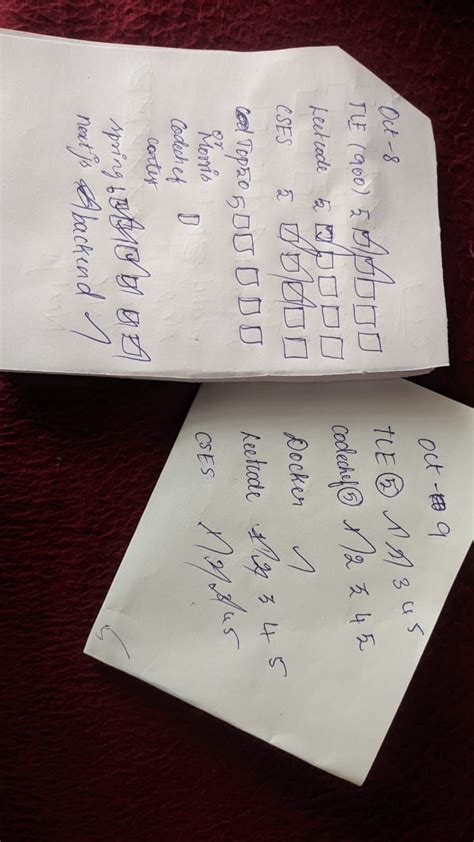 Oct-8
TLE (900) 5
Leetcode 5
CSES 5
Top50 5
or Morris
Codechef
contest
spring
nextjs backend
Oct - 9
TLE (5) 3 4 5
Codechef (5) 2 3 4 5
Docker
Leetcode 3 4 5
CSES 4 5